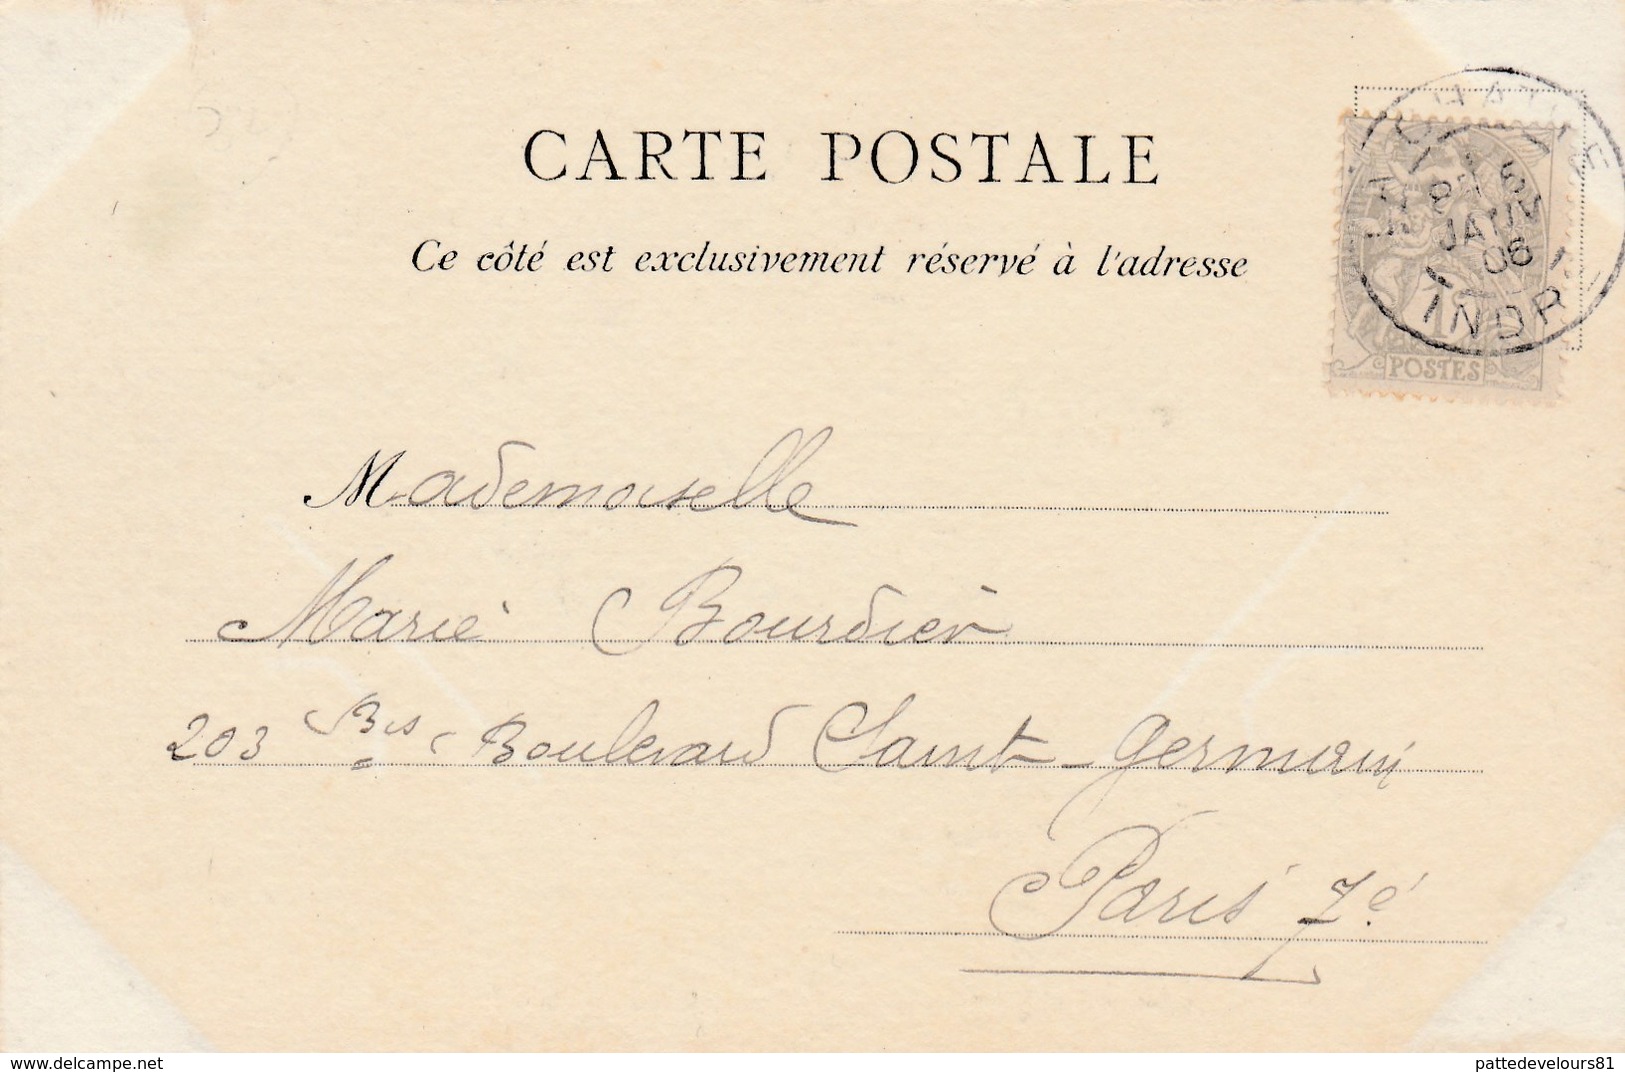 CARTE POSTALE
Ce côté est exclusivement réservé à l'adresse
8
JANV
06
INDRE
1
POSTES
Mademoiselle
Marie Bourdier
203 Bis Boulevard Saint-Germain
Paris 7e
delcampe.net
pattedevelours81